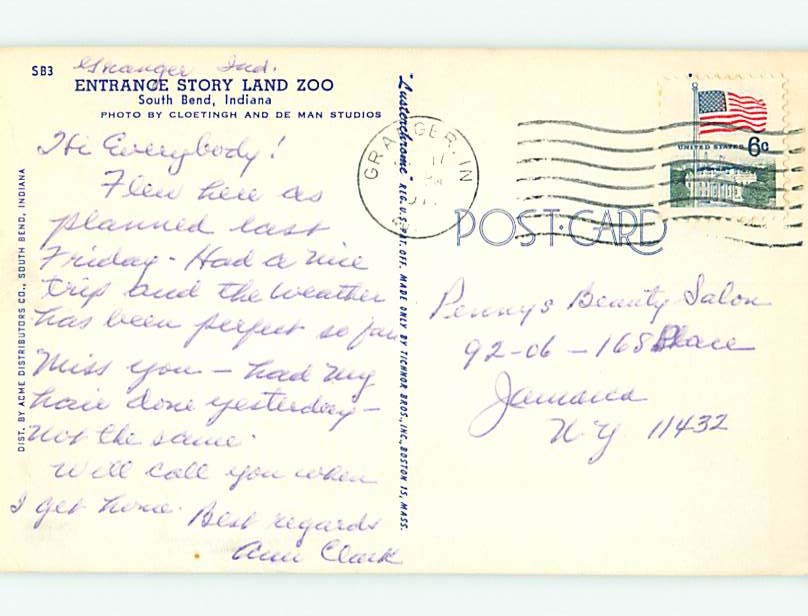 Granger Ind.
SB3
ENTRANCE STORY LAND ZOO
South Bend, Indiana
PHOTO BY CLOETINGH AND DE MAN STUDIOS
Hi Everybody!
Flew here as
planned last
Friday - Had a nice
trip and the weather
has been perfect so far
Miss you - had my
hair done yesterday -
not the same.
Will call you when
I get home. Best regards
Ann Clark
DIST. BY ACME DISTRIBUTORS CO., SOUTH BEND, INDIANA
"Lusterchrome" REG. U.S. PAT. OFF. MADE ONLY BY TICHNOR BROS., INC., BOSTON 15, MASS.
GRANGER, IN
11
UNITED STATES 6c
POST CARD
Pennys Beauty Salon
92-06 - 168 Place
Jamaica
N.Y. 11432